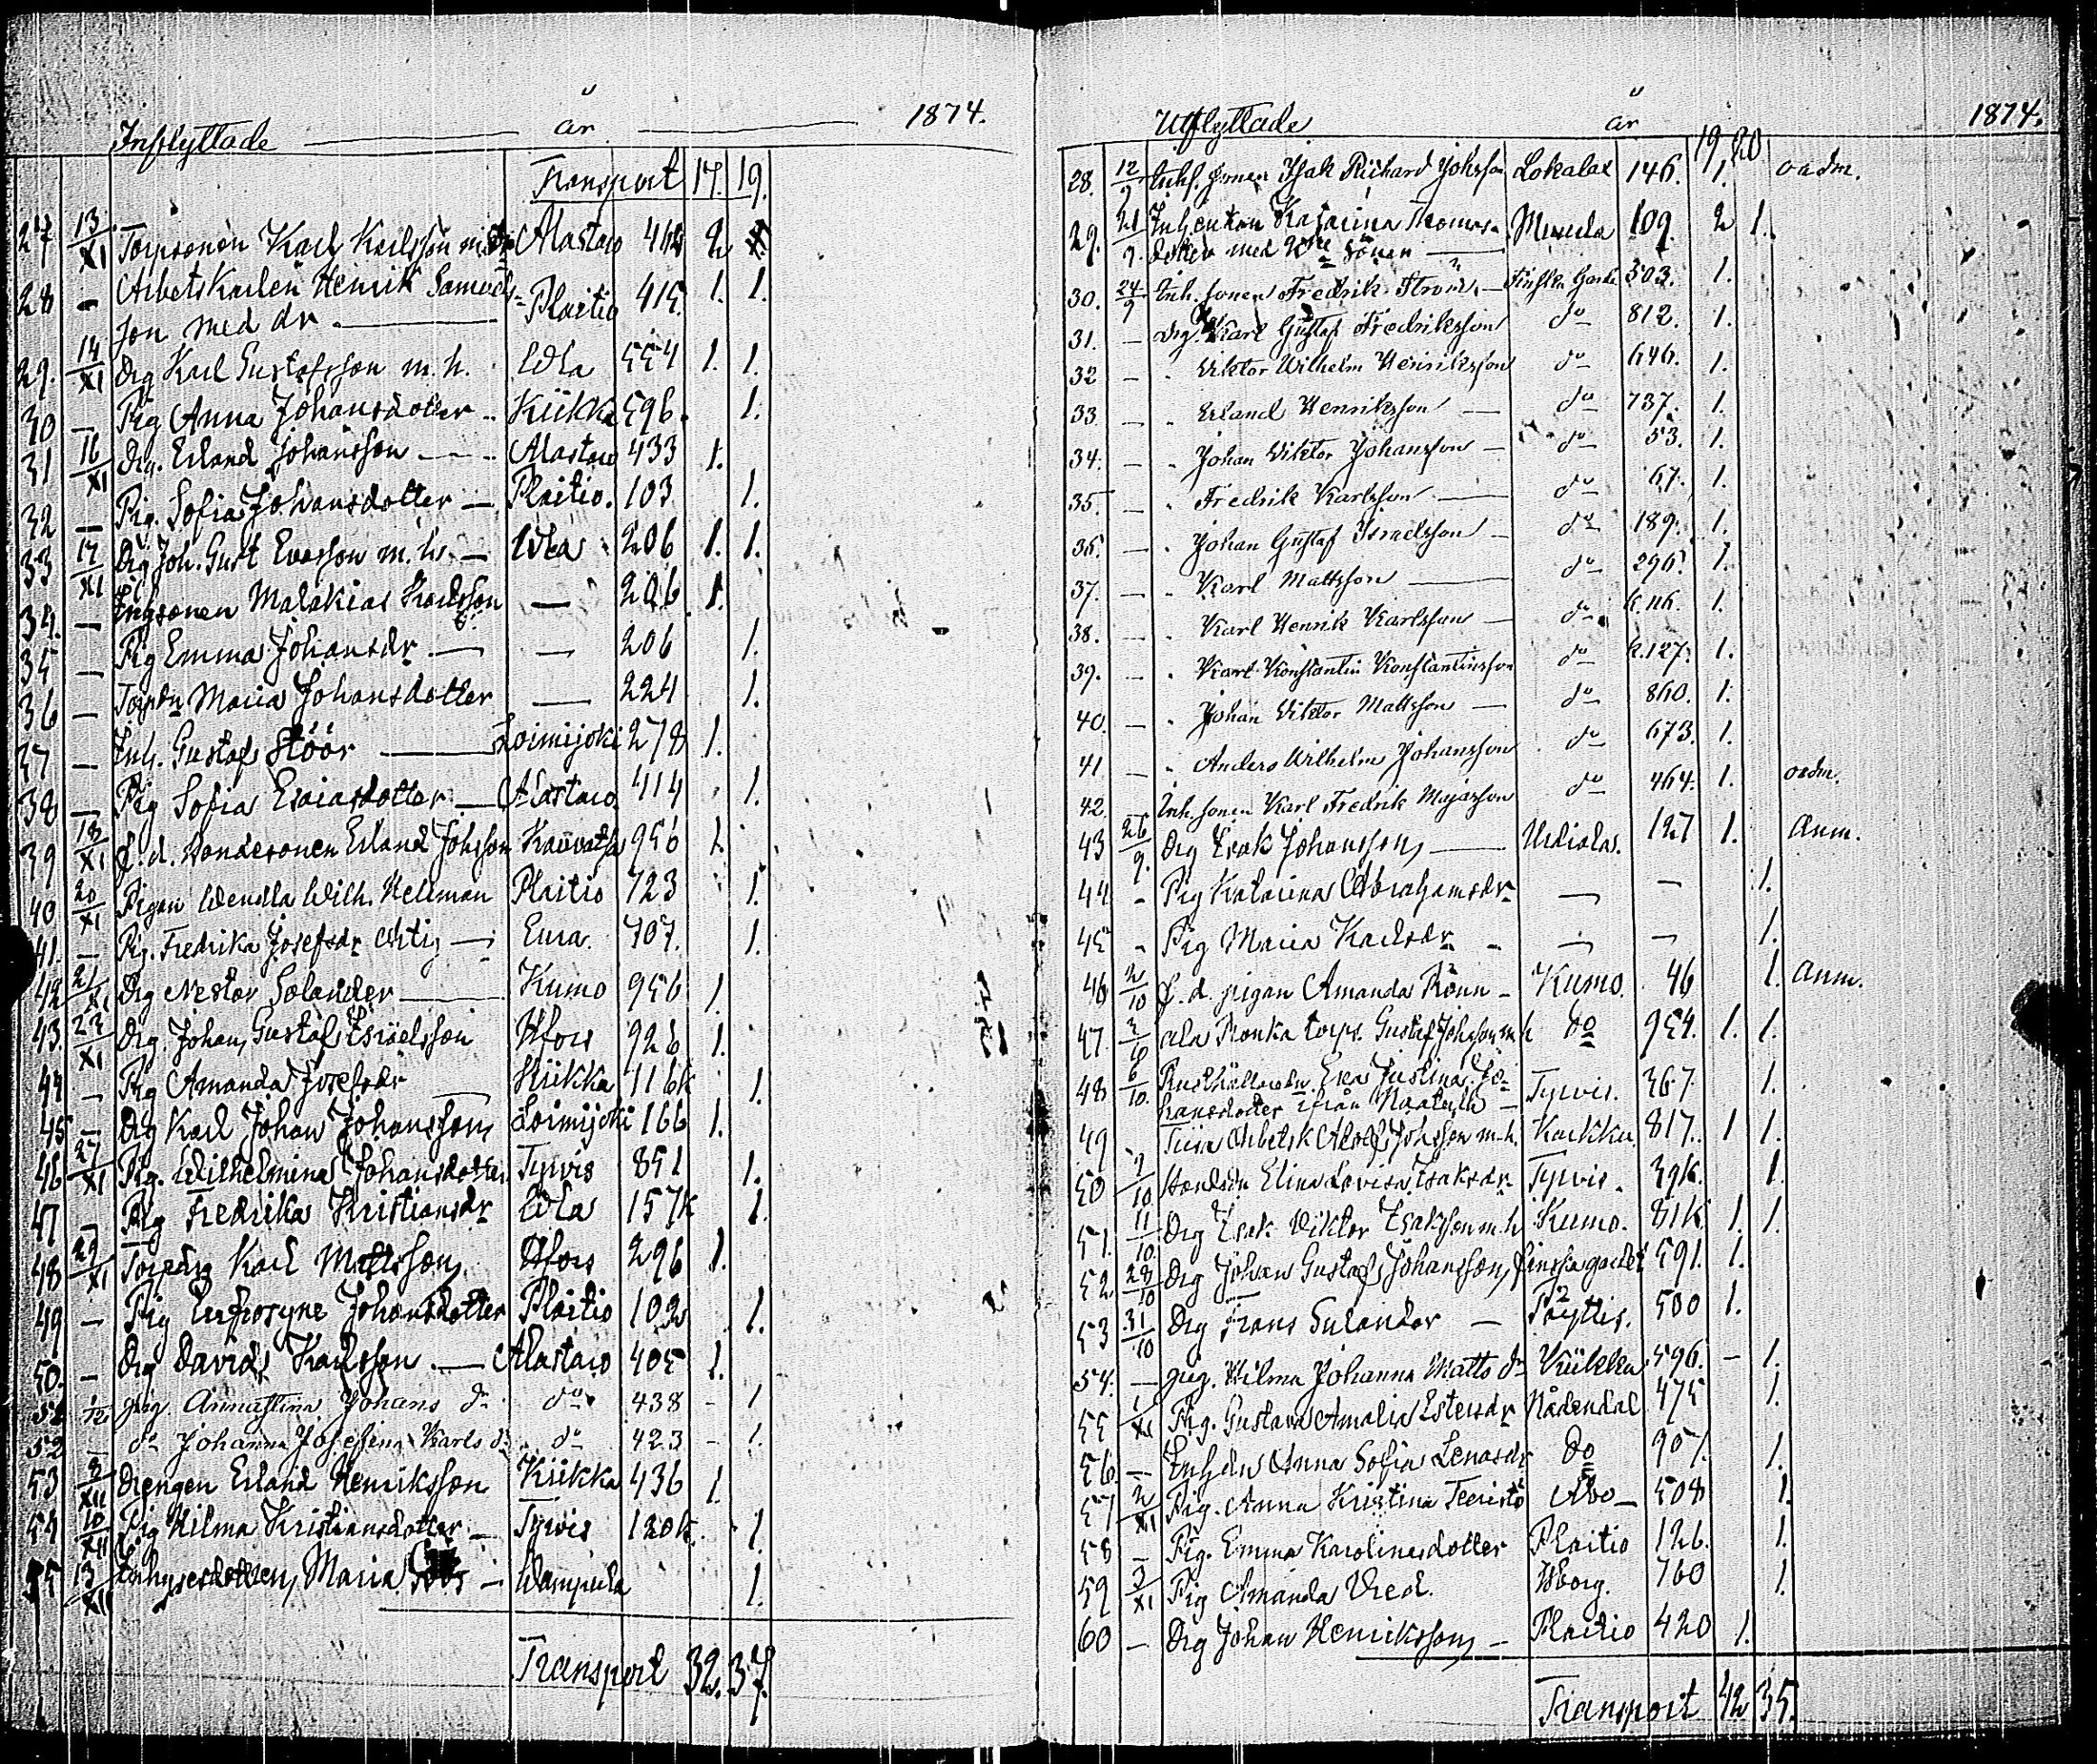 Inflyttade år 1874.
Transport 17. 19.
27 13/XI Torpsonen Karl Karlsson m. Alastaro 462 2
28 – Arbetskarlen Henrik Samuels-
son med dr – Plaitio 415. 1. 1.
29. 14/XI Drg Karl Gustafsson m. h. Wla 554 1. 1.
30 – Pig Anna Johansdotter – Kiikka 596. 1.
31 16/XI Drg. Erland Johansson – Alastaro 433 1.
32 – Pig. Sofia Johansdotter – Plaitio. 103 1.
33 17/XI Drg Joh. Gust Evasson m. h. – Wla 206 1. 1.
34. – Inhysonen Malakias Karlsson – 206 1.
35 – Pig Emma Johansdr – – 206 1.
36 – Torpdn Maria Johansdotter – 224 1.
37 – Inh. Gustaf Stöör – Loimijoki 278 1.
38 – Pig Sofia Esaiasdotter – Alastaro 414 1.
39 18/XI F. d. bondesonen Erland Johsson Kauvatsa 956 1.
40 20/XI Pigan Wendla Wilh. Hellman Plaitio 723 1.
41. – Pig. Fredrika Josefsdr Artig – Eura. 707. 1.
42 21/XI Drg Nestor Solander – Kumo 956 1.
43. 23/XI Drg. Johan Gustaf Israelsson Hfors 926 1.
44 – Pig Amanda Josefsdr – Kiikka 116k 1.
45 – Drg Karl Johan Johansson Loimijoki 166 1.
46 27/XI Pig. Wilhelmina Johansdotter Tyrvis 851 1.
47 – Pig Fredrika Kristiansdr Wla 157k 1.
48 29/XI Torpdrg Karl Mattsson Hfors 296 1.
49 – Pig Eufrosyne Johansdotter Plaitio 102 1.
50. – Drg David Karlsson – Alastaro 405 1.
51 1/12 pig. Annastina Johans dr do 438 – 1
52 – do Johanna Josefina Karls dr do 423 – 1.
53 8/XII Drengen Erland Henriksson Kiikka 436 1.
54 10/XII Pig Hilma Kristiansdotter – Tyrvis 120k. 1.
55 13/XII Inhysesdottern Maria – Wampula 1.
Transport 32. 37.
Utflyttade år 1874.
19. 20
28. 12/9 Inhs. sonen Isak Richard Johsson Lokalax 146. 1. oadm.
29. 21/9. Inhenkan Katarina Thomas-
dotter med 2ne söner – Mouola 109. 2 1.
30. 24/9 Inh. sonen Fredrik Ström. – Finska Garde 503. 1.
31. – Drg. Karl Gustaf Fredriksson do 812. 1.
32 – " Viktor Wilhelm Henriksson do 646. 1.
33. – " Erland Henriksson – do 737. 1.
34. – " Johan Viktor Johansson – do 53. 1.
35. – " Fredrik Karlsson – do 67. 1.
36. – " Johan Gustaf Israelsson – do 189. 1.
37. – " Karl Mattsson – do 296. 1.
38. – " Karl Henrik Karlsson – do k. 116. 1.
39. – " Karl Konstantin Konstantinsson do k. 127. 1.
40. – " Johan Viktor Mattsson – do 860. 1.
41 – " Anders Wilhelm Johansson do 673. 1.
42. Inh. sonen Karl Fredrik Majasson do 464. 1. oadm.
43 26/9. Drg Isak Johansson – Urdiala. 127 1. Anm.
44 – Pig Katarina Abrahamsdr – – 1.
45 – Pig Maria Karlsdr – – – 1.
46 2/10 F. d. pigan Amanda Rönn – Kumo. 46 1. Anm.
47. 3/10 Ala Ronka torps. Gustaf Johsson m. h do 954. 1. 1.
48 6/10. Rusthållaredn. Eva Justina Jo-
hansdotter ifrån – Tyrvis. 367. 1.
49 – Arbetsk Adolf Johsson m. h. Karkku 817. 1 1.
50 7/10 Bondedn Elina Lovisa Isaksdr Tyrvis. 39k. 1.
51. 11/10 Drg Isak Viktor Isaksson m. h Kumo. 81k 1. 1.
52 28/10 Drg Johan Gustaf Johansson finska gardet 591. 1.
53 31/10 Drg Frans Sulander – Pöyttis. 500 1.
54. – pig. Hilma Johanna Matts dr Kiikka 596. – 1.
55 1/XI Pig. Gustava Amalia Estersdr Nådendal 475 1.
56. – Inhdn Anna Sofia Lenasdr do 907. 1.
57 2/XI Pig. Anna Kristina Åbo – 508 1.
58 – Pig. Emma Karolinasdotter Plaitio 126. 1.
59 3/XI Pig Amanda Vred. Wborg. 760 1.
60 – Drg Johan Henriksson – Plaitio 420 1.
Transport 42 35.